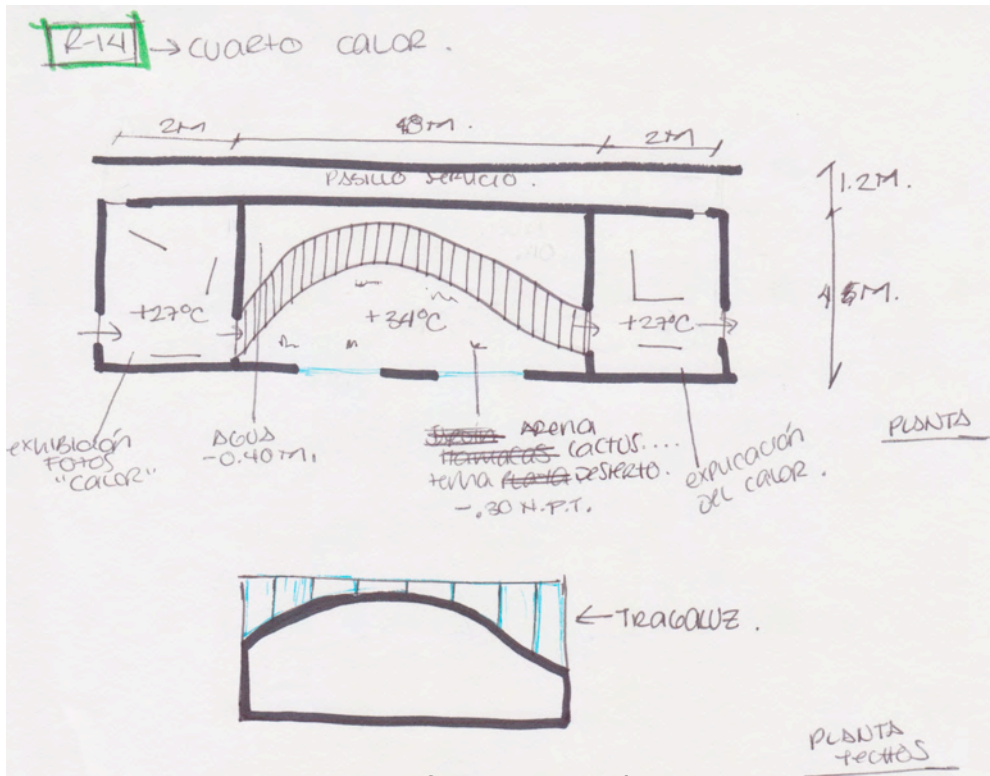 R-14 → CUARTO CALOR.
2M
2M
PASILLO SERVICIO.
1.2M.
+27°C
+34°C
+27°C
exhibición
FOTOS
"CALOR"
AGUA
-0.40m.
Arena
Hamacas CACTUS....
tema PLAYA DESIERTO.
-.30 N.P.T.
explicación
DEL CALOR.
PLANTA
← TRAGALUZ.
PLANTA
TECHOS